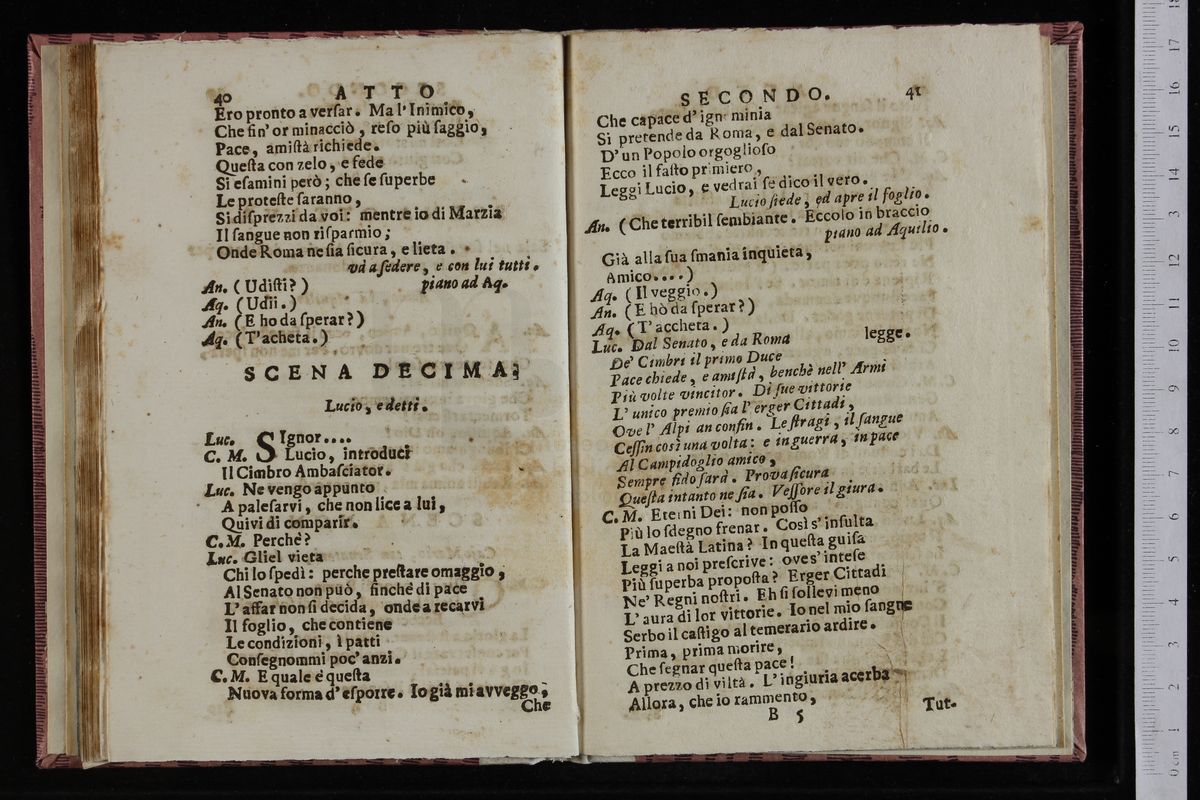 40 ATTO
Ero pronto a verſar. Ma l' Inimico,
Che fin' or minacciò, reſo più ſaggio,
Pace, amiſtà richiede.
Queſta con zelo, e fede
Si eſamini però; che ſe ſuperbe
Le proteſte ſaranno,
Si diſprezzi da voi: mentre io di Marzia
Il ſangue non riſparmio;
Onde Roma ne ſia ſicura, e lieta.
và a ſedere, e con lui tutti.
An. (Udiſti?) piano ad Aq.
Aq. (Udii.)
An. (E ho da ſperar?)
Aq. (T' acheta.)
SCENA DECIMA;
Lucio, e detti.
Luc. SIgnor....
C. M. Lucio, introduci
Il Cimbro Ambaſciator.
Luc. Ne vengo appunto
A paleſarvi, che non lice a lui,
Quivi di comparir.
C. M. Perchè?
Luc. Gliel vieta
Chi lo ſpedì: perche preſtare omaggio,
Al Senato non può, finchè di pace
L' affar non ſi decida, onde a recarvi
Il foglio, che contiene
Le condizioni, i patti
Conſegnommi poc' anzi.
C. M. E quale è queſta
Nuova forma d' eſporre. Io già mi avveggo,
Che
SECONDO. 41
Che capace d' ign minia
Si pretende da Roma, e dal Senato.
D' un Popolo orgoglioſo
Ecco il faſto primiero,
Leggi Lucio, e vedrai ſe dico il vero.
Lucio ſiede, ed apre il foglio.
An. (Che terribil ſembiante. Eccolo in braccio
piano ad Aquilio.
Già alla ſua ſmania inquieta,
Amico....)
Aq. (Il veggio.)
An. (E hò da ſperar?)
Aq. (T' accheta.)
Luc. Dal Senato, e da Roma legge.
De' Cimbri il primo Duce
Pace chiede, e amiſtà, benchè nell' Armi
Più volte vincitor. Di ſue vittorie
L' unico premio ſia l' erger Cittadi,
Ove l' Alpi an confin. Le ſtragi, il ſangue
Ceſſin così una volta: e in guerra, in pace
Al Campidoglio amico,
Sempre fido ſarà. Prova ſicura
Queſta intanto ne ſia. Veſſore il giura.
C. M. Eterni Dei: non poſſo
Più lo ſdegno frenar. Così s' inſulta
La Maeſtà Latina? In queſta guiſa
Leggi a noi preſcrive: oves' inteſe
Più ſuperba propoſta? Erger Cittadi
Ne' Regni noſtri. Eh ſi ſollevi meno
L' aura di lor vittorie. Io nel mio ſangue
Serbo il caſtigo al temerario ardire.
Prima, prima morire,
Che ſegnar queſta pace!
A prezzo di viltà. L' ingiuria acerba
Allora, che io rammento,
B 5 Tut-